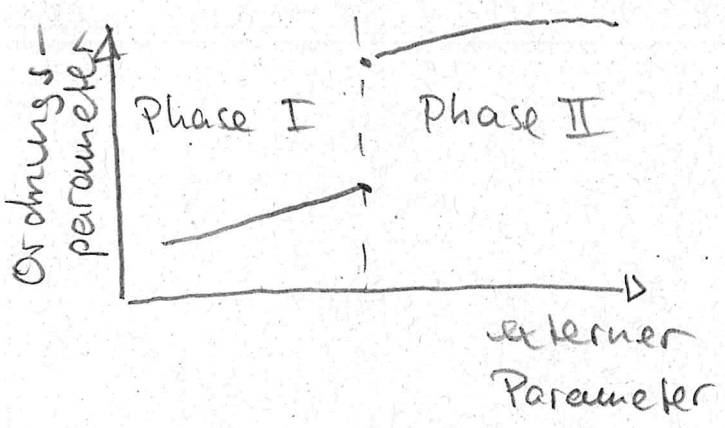 Ordnungs-
parameter
Phase I
Phase II
externer
Parameter